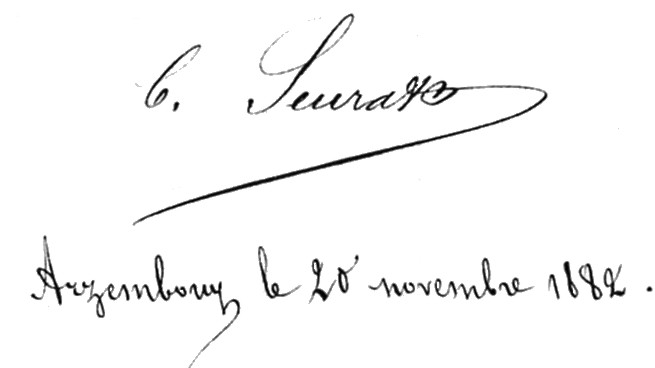 C. Seurat
Arzembouy le 20 novembre 1882.